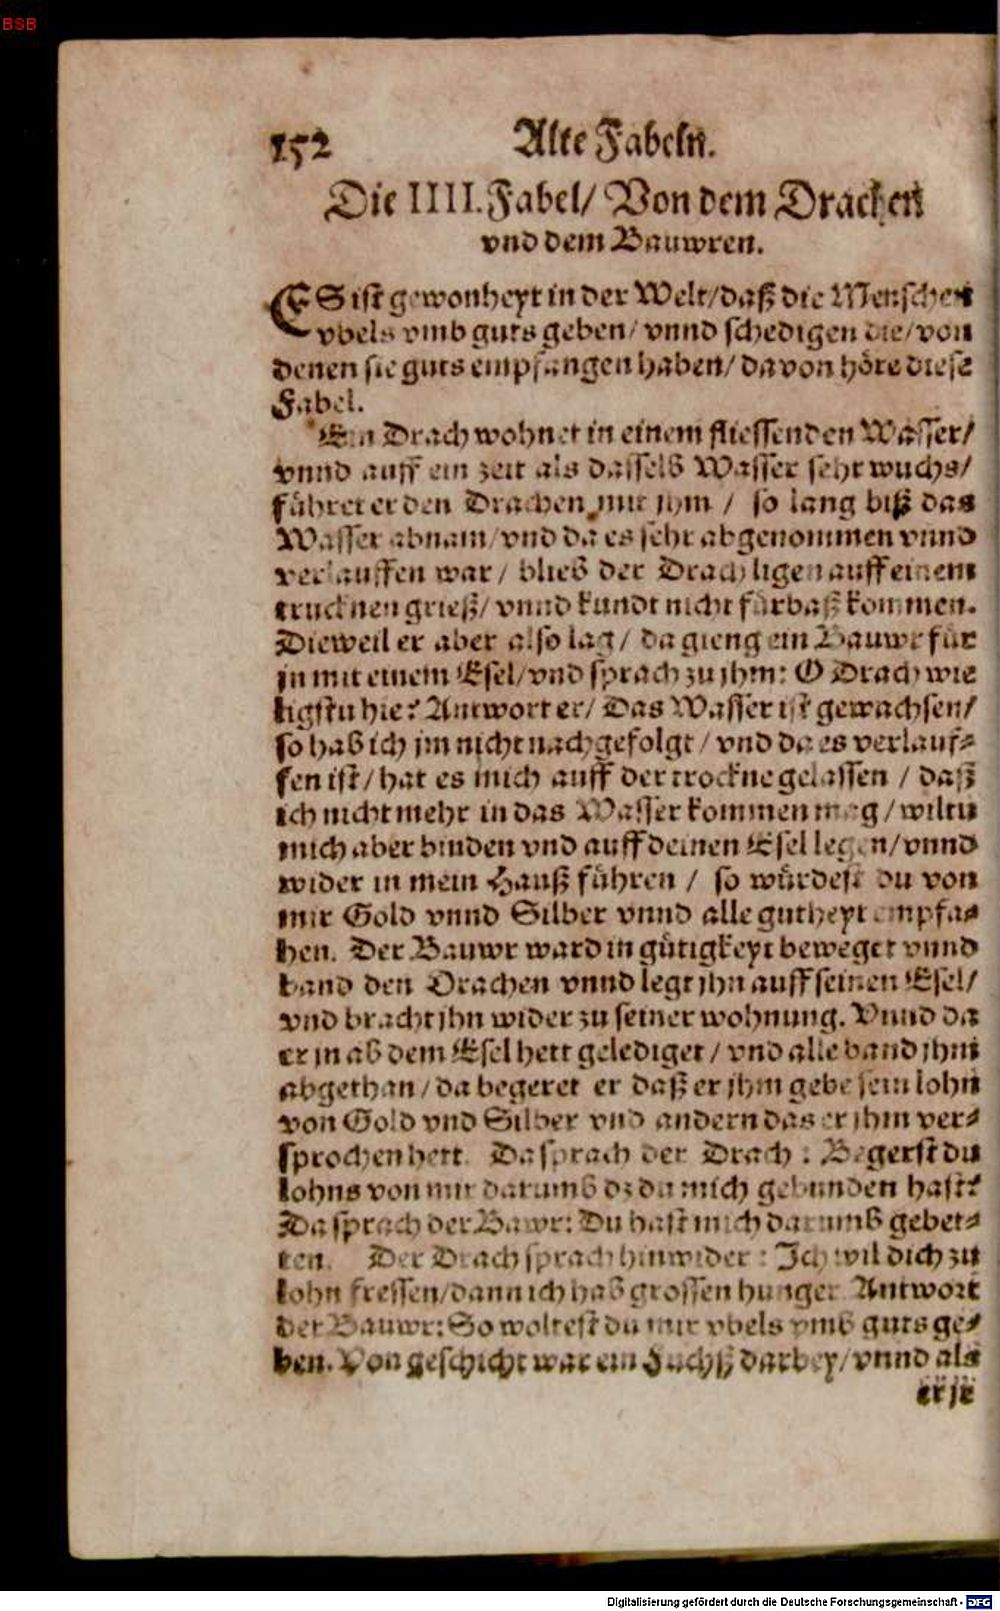 BSB
152 Alte Fabeln.
Die IIII. Fabel/ Von dem Drachen
vnd dem Bauwren.
ES ist gewonheyt in der Welt/daß die Menschen
vbels vmb guts geben/ vnnd schedigen die/von
denen sie guts empfangen haben/ davon höre diese
Fabel.
Ein Drach wohnet in einem fliessenden Wasser/
vnnd auff ein zeit als dasselb Wasser sehr wuchs/
führet er den Drachen mit jhm / so lang biß das
Wasser abnam/vnd da es sehr abgenommen vnnd
verlauffen war / blieb der Drach ligen auff einem
trucknen grieß/ vnnd kundt nicht fürbaß kommen.
Dieweil er aber also lag / da gieng ein Bauwr für
jn mit einem Esel/vnd sprach zu jhm: O Drach wie
ligstu hie? Antwort er/ Das Wasser ist gewachsen/
so hab ich jm nicht nachgefolgt / vnd da es verlauf-
fen ist/ hat es mich auff der trockne gelassen / daß
ich nicht mehr in das Wasser kommen mag / wiltu
mich aber binden vnd auff deinen Esel legen/vnnd
wider in mein Hauß führen / so würdest du von
mir Gold vnnd Silber vnnd alle gutheyt empfa-
hen. Der Bauwr ward in gütigkeyt beweget vnnd
band den Drachen vnnd legt jhn auff seinen Esel/
vnd bracht jhn wider zu seiner wohnung. Vnnd da
er jn ab dem Esel hett gelediget / vnd alle band jhm
abgethan / da begeret er daß er jhm gebe sein lohn
von Gold vnd Silber vnd andern das er jhm ver-
sprochen hett. Da sprach der Drach : Begerst du
lohns von mir darumb dz du mich gebunden hast?
Da sprach der Bawr: Du hast mich darumb gebet-
ten. Der Drach sprach hinwider : Ich wil dich zu
lohn fressen/dann ich hab grossen hunger. Antwort
der Bauwr: So woltest du mir vbels vmb guts ge-
ben. Von geschicht war ein Fuchß darbey/ vnnd als
er jr
Digitalisierung gefördert durch die Deutsche Forschungsgemeinschaft - DFG